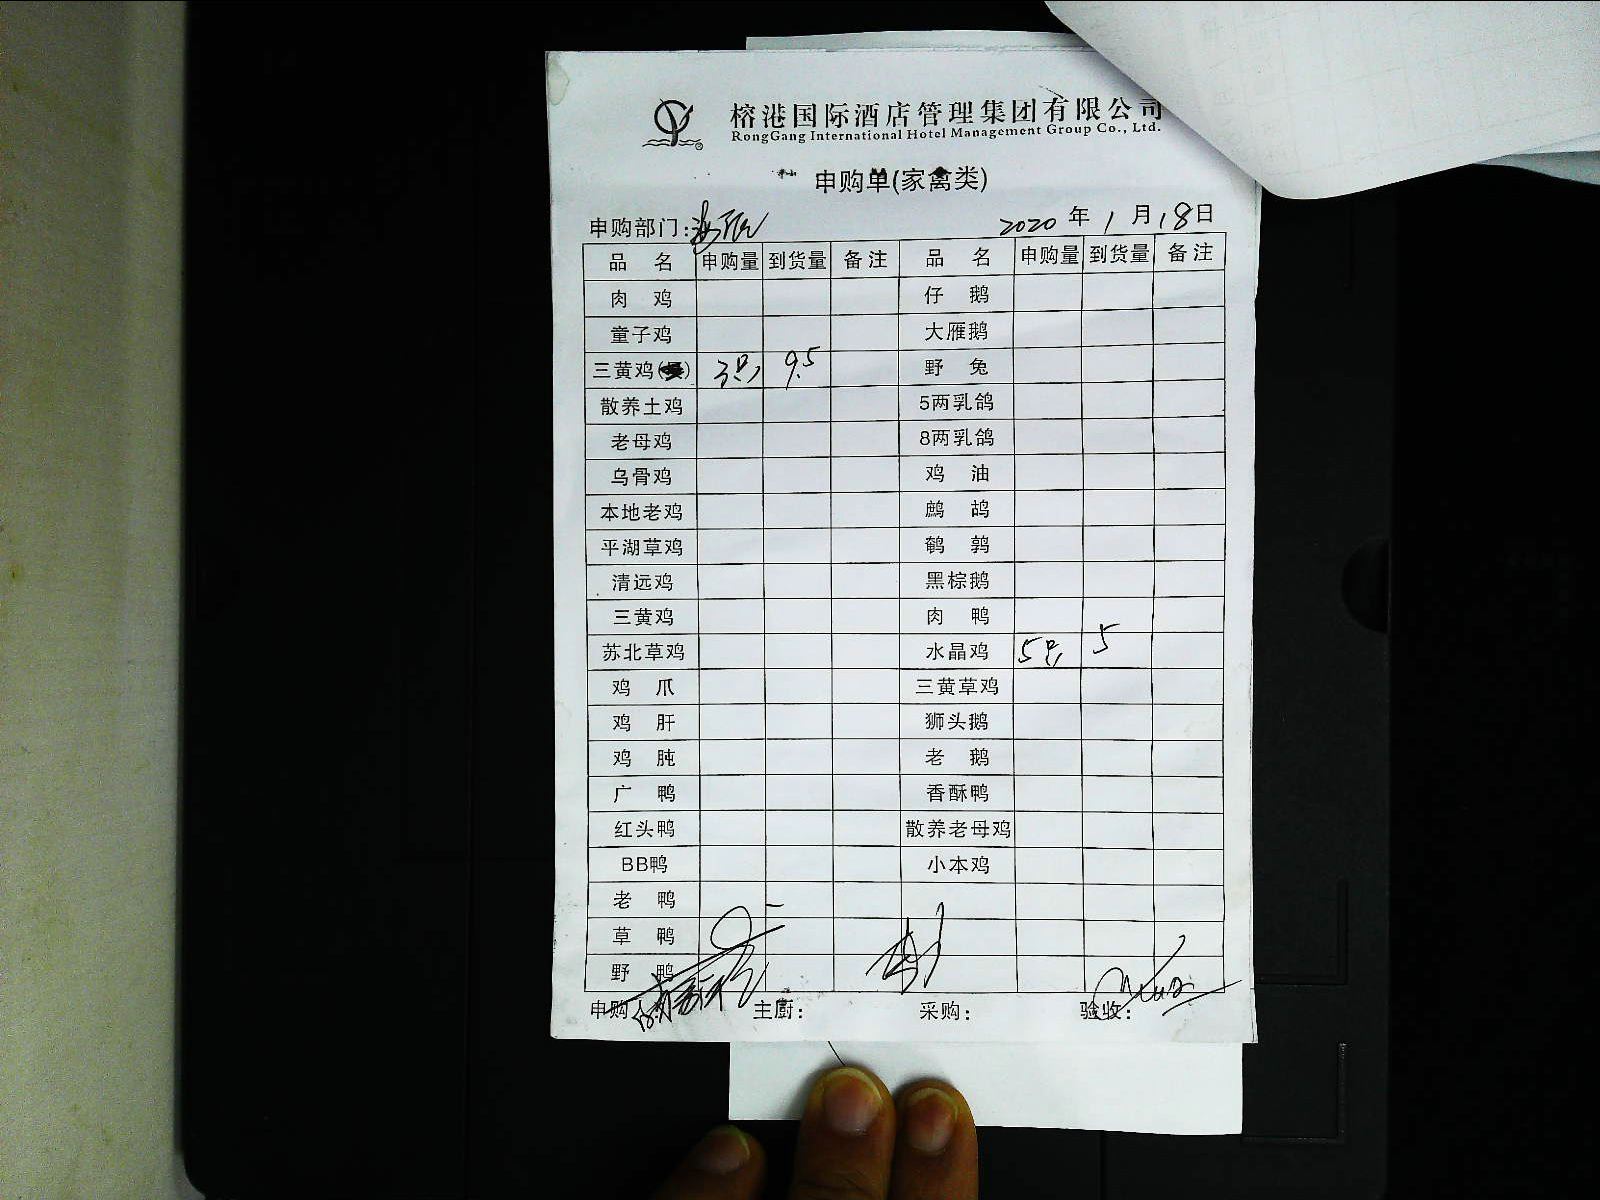 榕港国际酒店管理集团有限公司
RongGang International Hotel Management Group Co., Ltd.
申购单(家禽类)
申购部门: 2020 年 1 月 18 日
品 名 申购量 到货量 备注 品 名 申购量 到货量 备注
肉 鸡 仔 鹅
童子鸡 大雁鹅
三黄鸡 3只 9.5 野 兔
散养土鸡 5两乳鸽
老母鸡 8两乳鸽
乌骨鸡 鸡 油
本地老鸡 鹧 鸪
平湖草鸡 鹌 鹑
清远鸡 黑棕鹅
三黄鸡 肉 鸭
苏北草鸡 水晶鸡 5只 5
鸡 爪 三黄草鸡
鸡 肝 狮头鹅
鸡 肫 老 鹅
广 鸭 香酥鸭
红头鸭 散养老母鸡
BB鸭 小本鸡
老 鸭
草 鸭
野 鸭
申购 主厨: 采购: 验收: